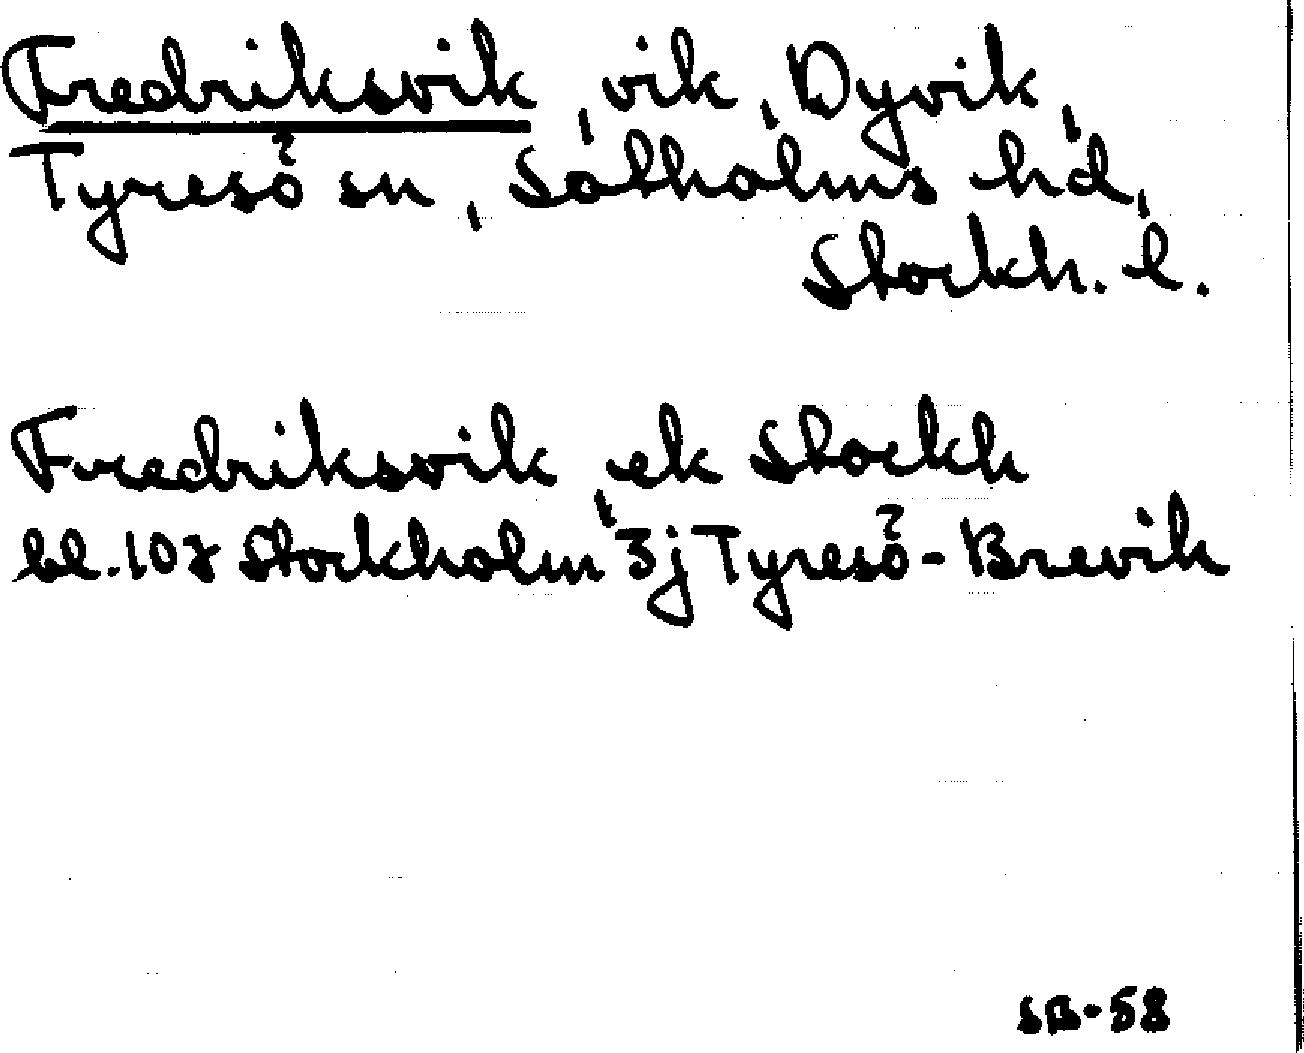 Fredriksvik, vik, Dyvik,
Tyresö sn, Sotholms hd,
Stockh. l.
Fredriksvik, ek Stockh
bl. 107 Stockholm 3j Tyresö-Brevik
SB-58